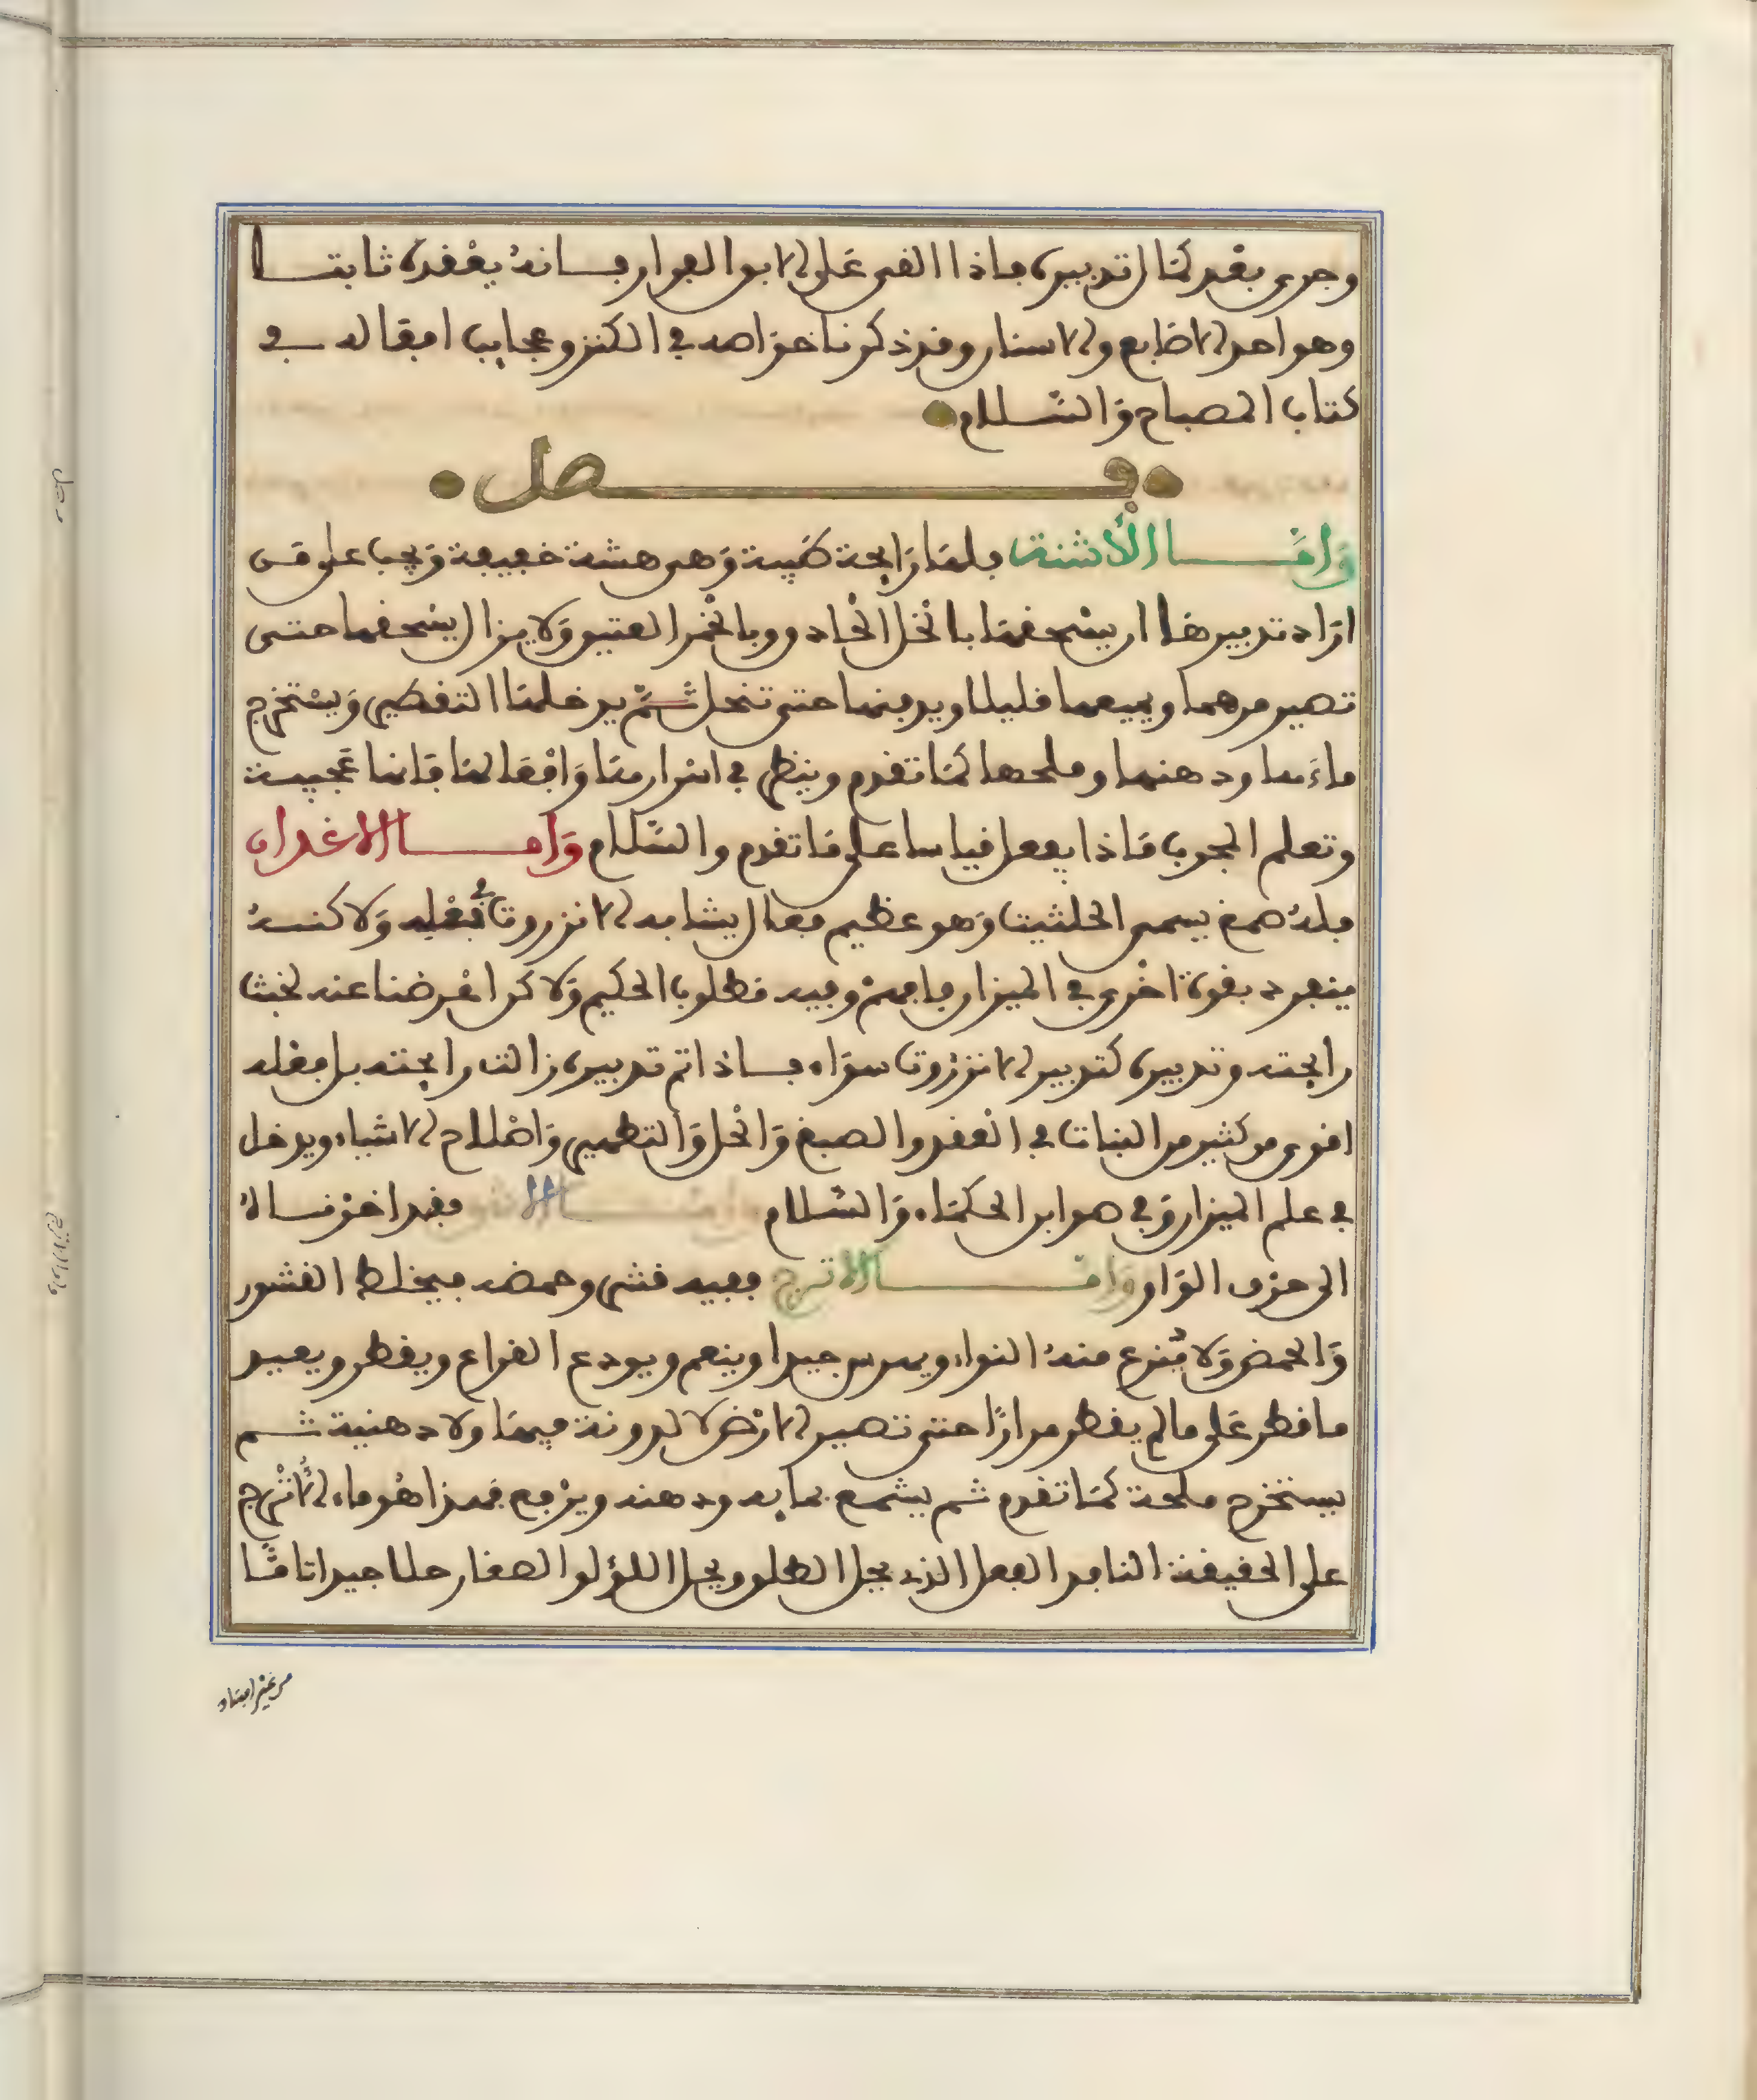 وجرى بعد كمال تدبيره فاذا القي على الابو الفرار فانه يعقده ثابتا
وهو احد الاضابع والاسنار وقد ذكرنا خواصه في الكنز وعجايب افعاله في
كتاب المصباح والسلام
فصل
واما الأشنة فلها رايحة طيبة وهي هشة خفيفة ويجب على من
اراد تدبيرها ان يسحقها بالخل الحاد وبالخمر العتيق ولا يزال يسحقها حتى
تصير مرهما ويميعها قليلا ويدفنها حتى تنحل ثم يدخلها التقطير ويستخرج
ماءها ودهنها وملحها كما تقدم وينظر في اسرارها وافعالها فانها عجيبة
وتعلم المجرب ماذا يفعل قياسا على ما تقدم والسلام واما الاغدان
فله صمغ يسمى الحلتيت وهو عظيم فعال يشابه الانزروت في فعله ولاكنه
ينفرد بقوة اخرى في الميزان فافهم وفيه مطلوب الحكيم ولاكن اعرضنا عنه لخبث
رايحته وتدبيره كتدبير الانزروت سواء فاذا تم تدبيره زالت رايحته بل فعله
اقوى من كثير من النبات في العقد والصبغ والحل والتطهير واصلاح الاشياء ويدخل
في علم الميزان وفي صوابن الحكماء والسلام واما الاشق فقد اخرناه
الى حرف الواو واما الاترج ففيه قشر وحمض فيخلط القشور
والحمض ولا ينزع منه النواء ويهرس جيدا وينعم ويودع القراع ويقطر ويعيد
ما قطر على ما لم يقطر مرارا حتى تصير الارض لا لدونة فيها ولا دهنية ثم
يستخرج ملحه كما تقدم ثم يشمع بمايه ودهنه ويرفع فهذا هو ماء الاترج
على الحقيقة النافد الفعل الذي يحل الطلق ويحل اللؤلو الصغار حلا جيدا تاما
من غير افساد